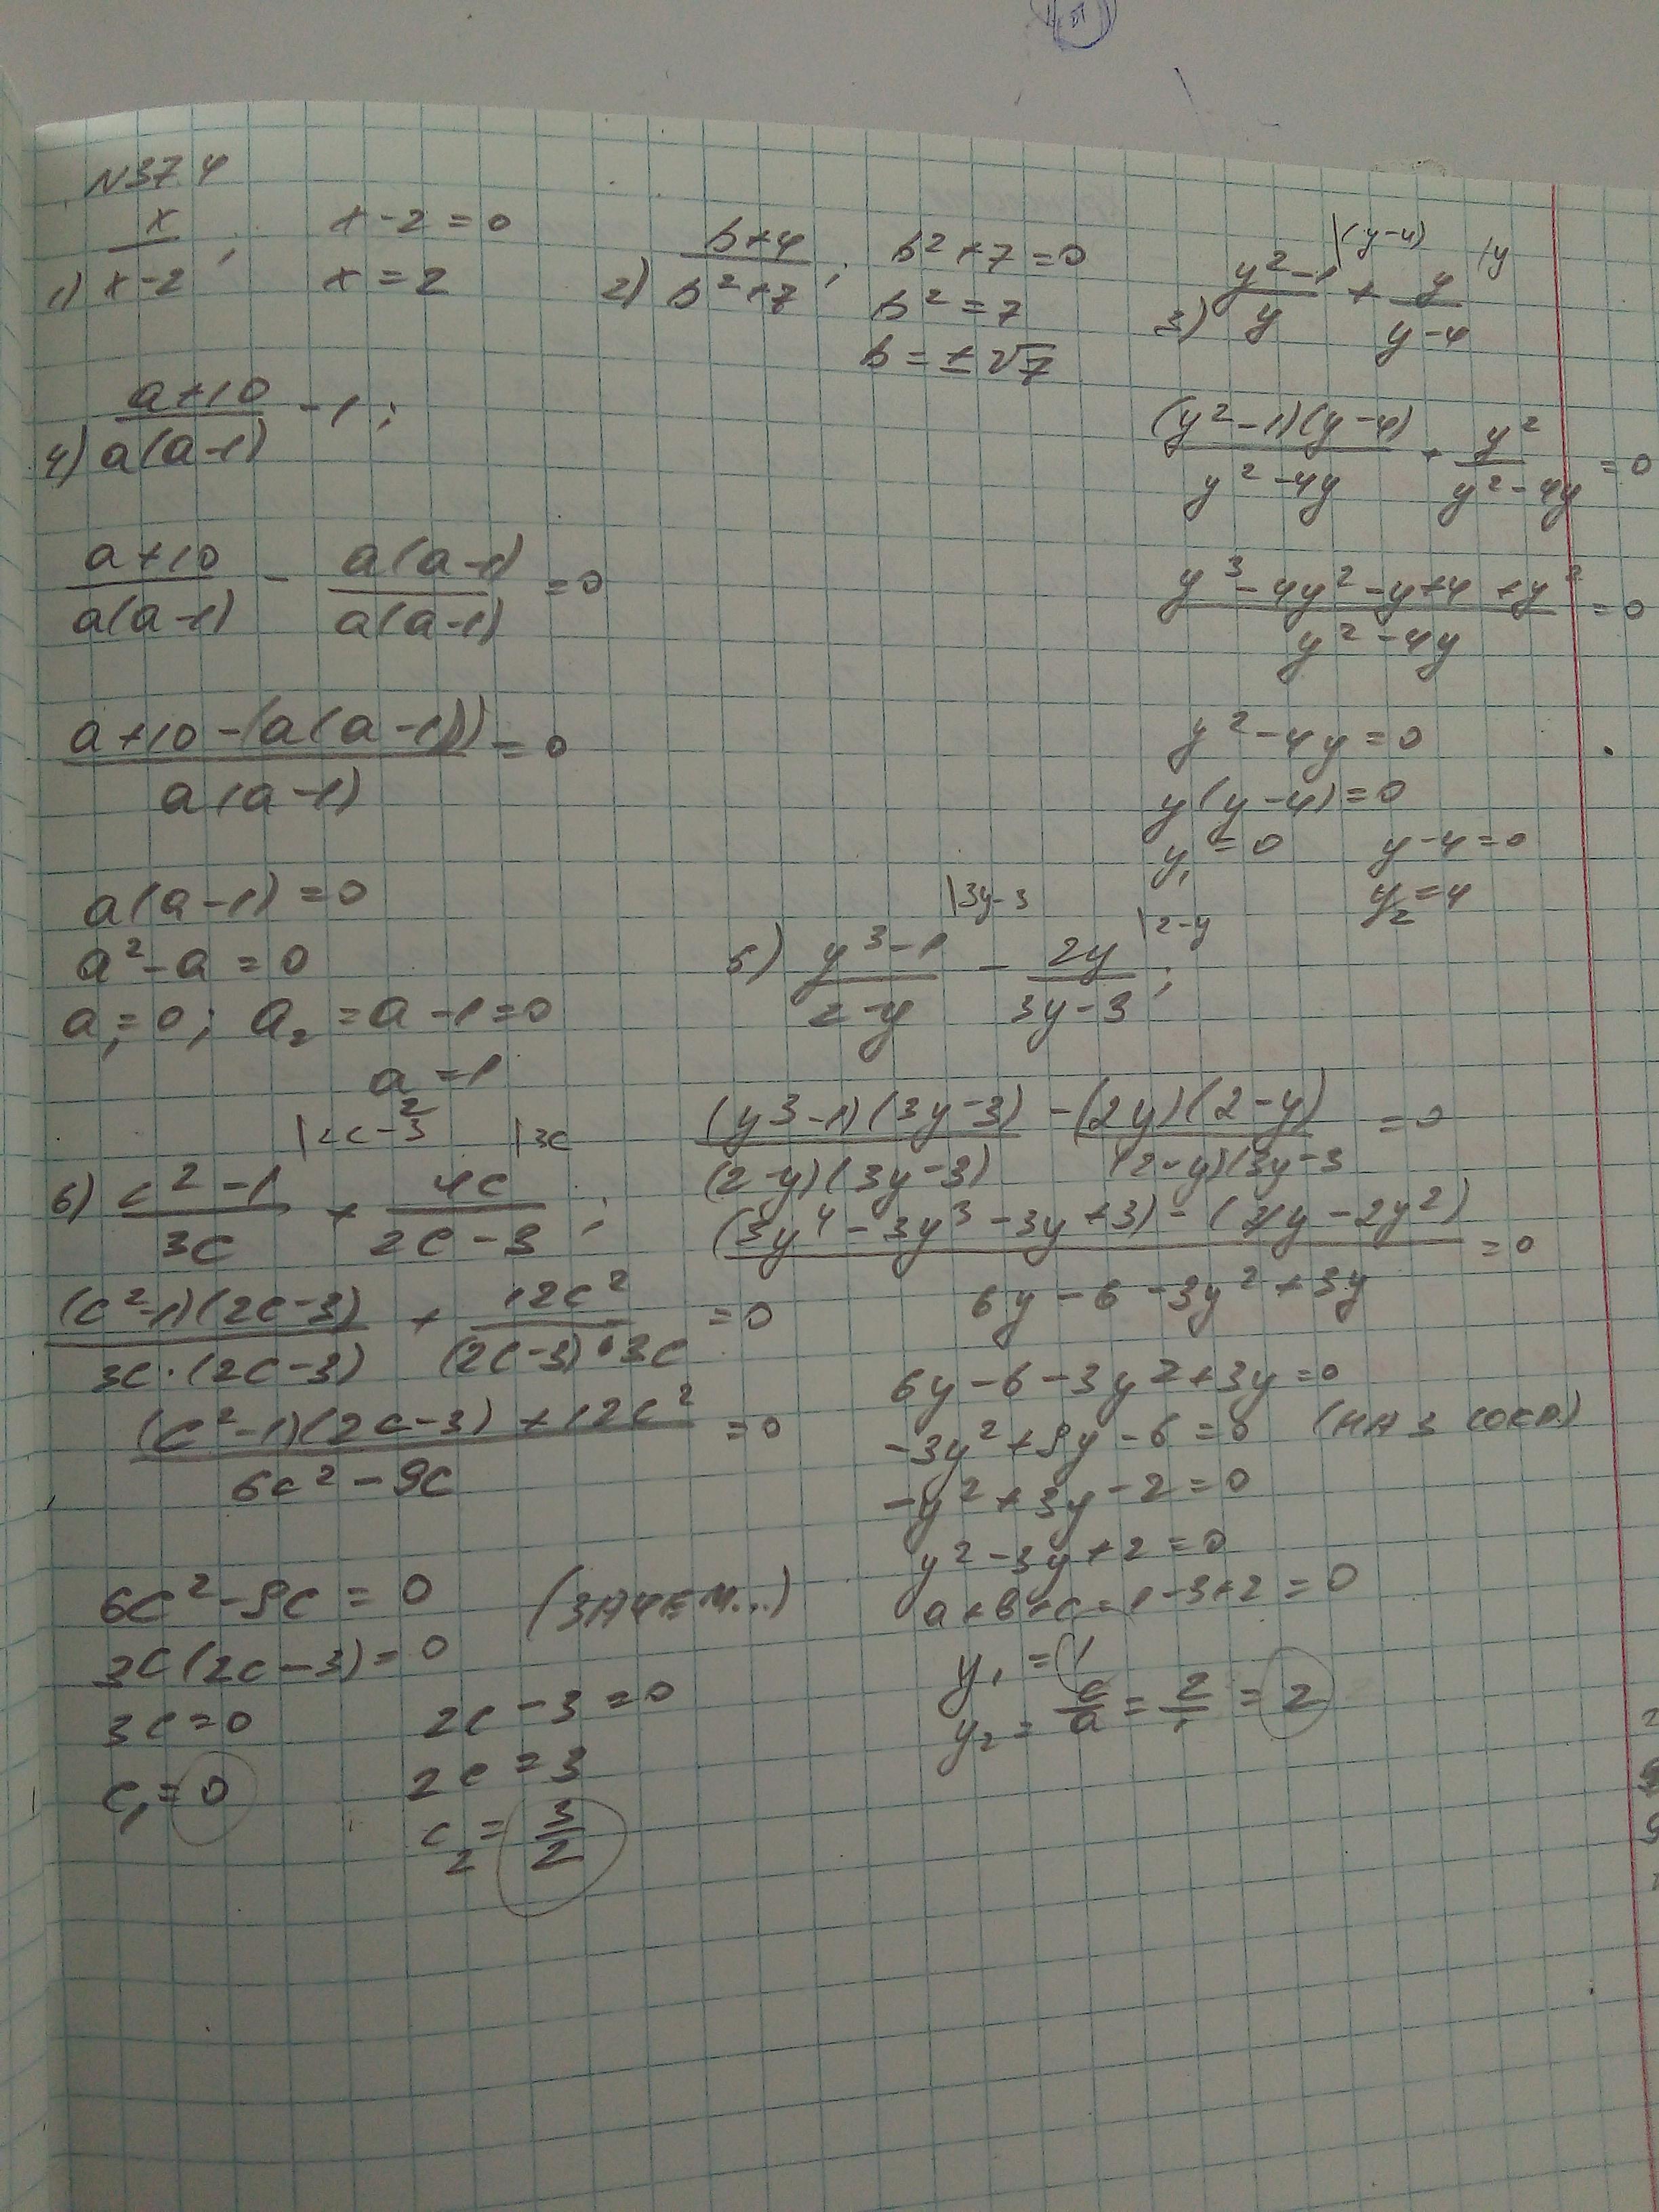 N374
1) x/(x-2); x-2=0
x=2
2) (b+4)/(b²+7); b²+7=0
b²=7
b=±√7
3) (y²-1)/y |(y-4) + y/(y-4) |y
((y²-1)(y-4))/(y²-4y) + y²/(y²-4y) =0
(y³-4y²-y+4+y²)/(y²-4y) =0
y²-4y=0
y(y-4)=0
y₁=0 y-4=0
y₂=4
4) (a+10)/(a(a-1)) -1;
(a+10)/(a(a-1)) - (a(a-1))/(a(a-1)) =0
(a+10-(a(a-1)))/(a(a-1)) =0
a(a-1)=0
a²-a=0
a₁=0; a₂=a-1=0
a=1
5) (y³-1)/(2-y) |3y-3 - 2y/(3y-3) |2-y;
((y³-1)(3y-3))/((2-y)(3y-3)) - ((2y)(2-y))/((2-y)(3y-3 =0
((3y⁴-3y³-3y+3)-(4y-2y²))/(6y-6-3y²+3y) =0
6y-6-3y²+3y=0
-3y²+9y-6=0 (НА 3 СОКР.)
-y²+3y-2=0
y²-3y+2=0
a+b+c=1-3+2=0
y₁=1
y₂=c/a=2/1=2
6) (c²-1)/3c |2c-3 + 4c/(2c-3) |3c;
((c²-1)(2c-3))/(3c·(2c-3)) + 12c²/((2c-3)·3c) =0
((c²-1)(2c-3)+12c²)/(6c²-9c) =0
6c²-9c=0 (ЗАЧЕМ...)
3c(2c-3)=0
3c=0 2c-3=0
c₁=0 2c=3
c₂=3/2